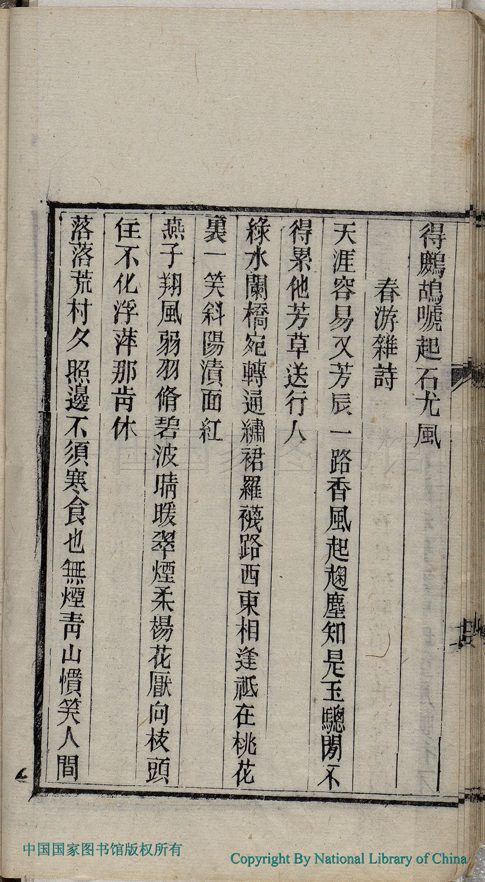 得鷓鴣號起石尤風
春游雜詩
天涯容易又芳辰一路香風起麴塵知是玉驄閒不
得累他芳草送行人
綠水闌橋宛轉通繡裙羅襪路西東相逢祗在桃花
裏一笑斜陽漬面紅
燕子翔風弱羽脩碧波晴暖翠煙柔楊花厭向枝頭
住不化浮萍那肯休
落落荒村夕照邊不須寒食也無煙靑山慣笑人間
中国国家图书馆版权所有
Copyright By National Library of China